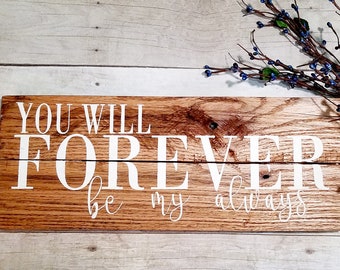 YOU WILL
FOREVER
be my always